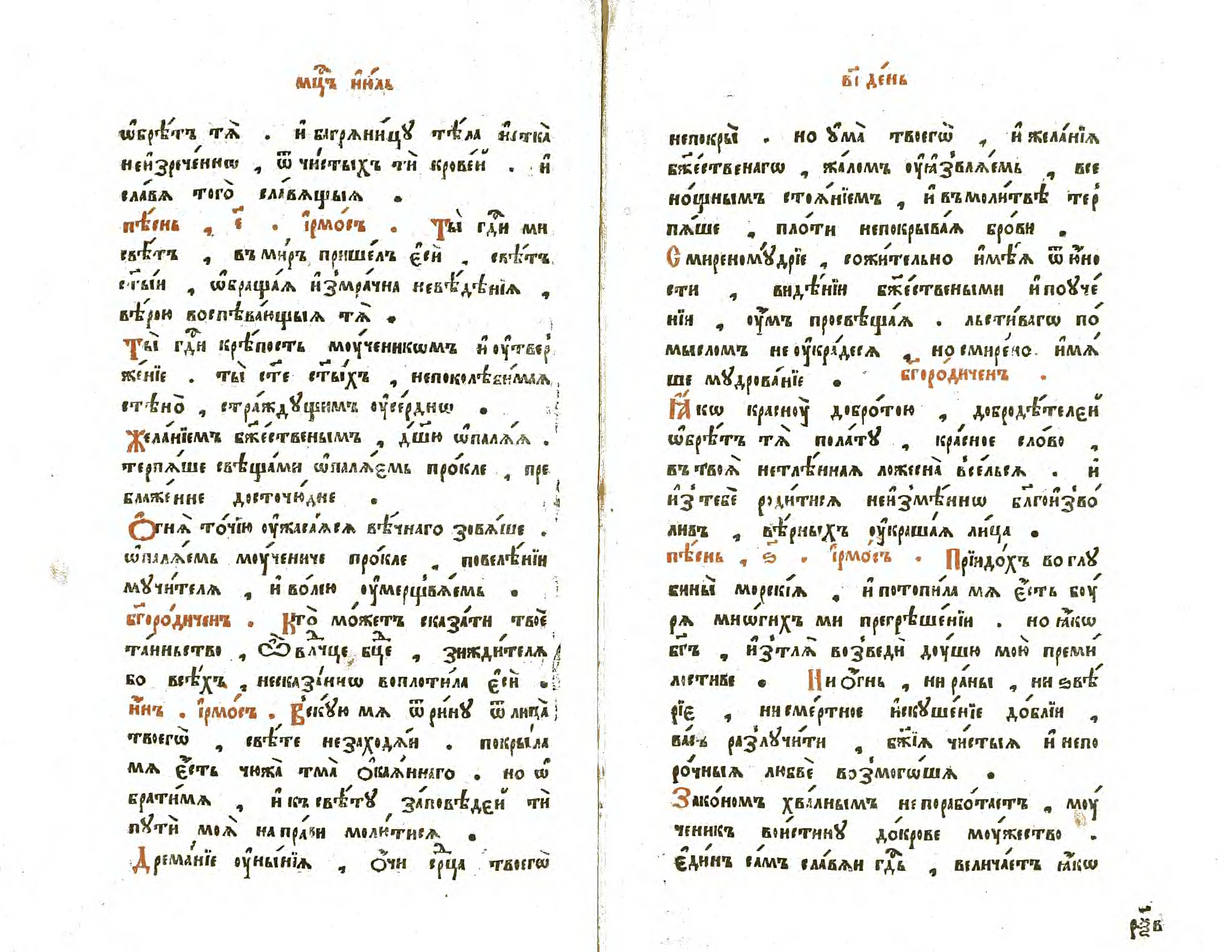 мц҃ъ і҆ю́ль
ѡ҆брѣ́тъ тѧ̀ . и҆ багрѧни́цꙋ тѣ́ла и҆стка̀
неи҆зрече́ннѡ , ѿ чи́стыхъ тѝ крове́й . и҆
сла́вѧ того̀ сла́вѧщыѧ .
пѣ́снь , є҃ . і҆рмо́съ . Ты̀ гдⷭ҇и ми
свѣ́тъ , въ ми́ръ прише́лъ є҆сѝ , свѣ́тъ
ст҃ы́и , ѡ҆браща́ѧ и҆з̾мра́чна невѣ́дѣнїѧ ,
вѣ́рою воспѣва́ющыѧ тѧ̀ .
Ты̀ гдⷭ҇и крѣ́пость моу́ченикѡмъ и҆ оу҆твер
же́нїе . ты̀ ст҃е ст҃ы́хъ , непоколѣби́маѧ
стѣно̀ , стра́ждꙋщимъ оу҆се́рднѡ .
Жела́нїемъ бж҃е́ственымъ , дш҃ю ѡ҆палѧ́ѧ .
терпѧ́ше свѣща́ми ѡ҆палѧ́емь про́кле , пре
блаже́нне досточю́дне .
Ѻ҆гнѧ̀ то́чїю оу҆жаса́ѧсѧ вѣ́чнаго зовѧ́ше .
ѡ҆палѧ́емь моу́чениче про́кле , повелѣ́нїи
мꙋчи́телѧ , и҆ во́лею оу҆мерщвѧ́емь .
бг҃оро́диченъ . Кто̀ мо́жетъ сказа́ти твоѐ
та́иньство , Ѽ влⷣчце бц҃е , зижди́телѧ
бо всѣ́хъ , несказа́ннѡ воплоти́ла є҆сѝ .
и҆́нъ . і҆рмо́съ . Вску́ю мѧ ѿри́нꙋ ѿ лица̀
твоегѡ̀ , свѣ́те незаходѧ́и . покры́ла
мѧ є҆́сть чюжа̀ тма̀ ѻ҆каѧ́ннаго . но ѡ҆
брати́мѧ , и҆ къ свѣ́тꙋ за́повѣдеи тѝ
пꙋтѝ моѧ̀ напра́ви моли́тисѧ .
Дрема́нїе оу҆ны́нїѧ , ѻ҆́чи срⷣца твоегѡ̀
в҃і де́нь
непокры̀ . но ᲂу҆ма̀ твоегѡ̀ , и҆ жела́нїѧ
бж҃е́ственагѡ , жа́ломъ оу҆ѧ҆звлѧ́емь , все
но́щнымъ стоѧ́нїемъ , и҆ въ моли́твѣ тер
пѧ́ше , пло́ти непокрыва́ѧ бро́ви .
Смиреномꙋ́дрїе , сожи́тельно и҆мѣ́ѧ ѿ ю҆́но
сти , видѣ́нїи бж҃е́ствеными и҆ поуче́
нїи , оу҆́мъ просвѣща́ѧ . льсти́вагѡ по́
мысломъ не оу҆кра́десѧ , но смире́но имѧ́
ше мꙋ́дрованїе . бг҃оро́диченъ .
Ꙗ҆́кѡ красноу̀ добро́тою , добродѣ́телеи
ѡ҆брѣ́тъ тѧ̀ пола́тꙋ , кра́сное сло́во ,
въ твоѧ̀ нетлѣ́ннаѧ ложесна̀ всельсѧ . и҆
и҆з̾ тебѐ роди́тисѧ неи҆змѣ́ннѡ бл҃гои҆зво́
ливъ , вѣ́рныхъ оу҆краша́ѧ ли́ца .
пѣ́снь , ѕ҃ . і҆рмо́съ . Прїидо́хъ во глꙋ
бины̀ морскі́ѧ , и҆ потопи́ла мѧ є҆́сть боу́
рѧ мнѡ́гихъ ми прегрѣше́нїи . но ꙗ҆́кѡ
бг҃ъ , и҆з̾ тлѧ̀ возведѝ доу́шю мою̀ преми́
лостиве . Ни ѻ҆́гнь , ни ра́ны , ни ѕвѣ́
рїе , ни сме́ртное и҆скꙋше́нїе до́блїи ,
ва́съ разлꙋчи́ти , бж҃їѧ чи́стыѧ и҆ непо
ро́чныѧ любвѐ возмого́шѧ .
Зако́номъ хвалнымъ непорабо́таетъ , моу́
ченикъ вои́стинꙋ до́брове моу́жество .
Є҆ди́нъ са́мъ сла́вѧи гдⷭ҇ь , велича́етъ ꙗ҆́кѡ